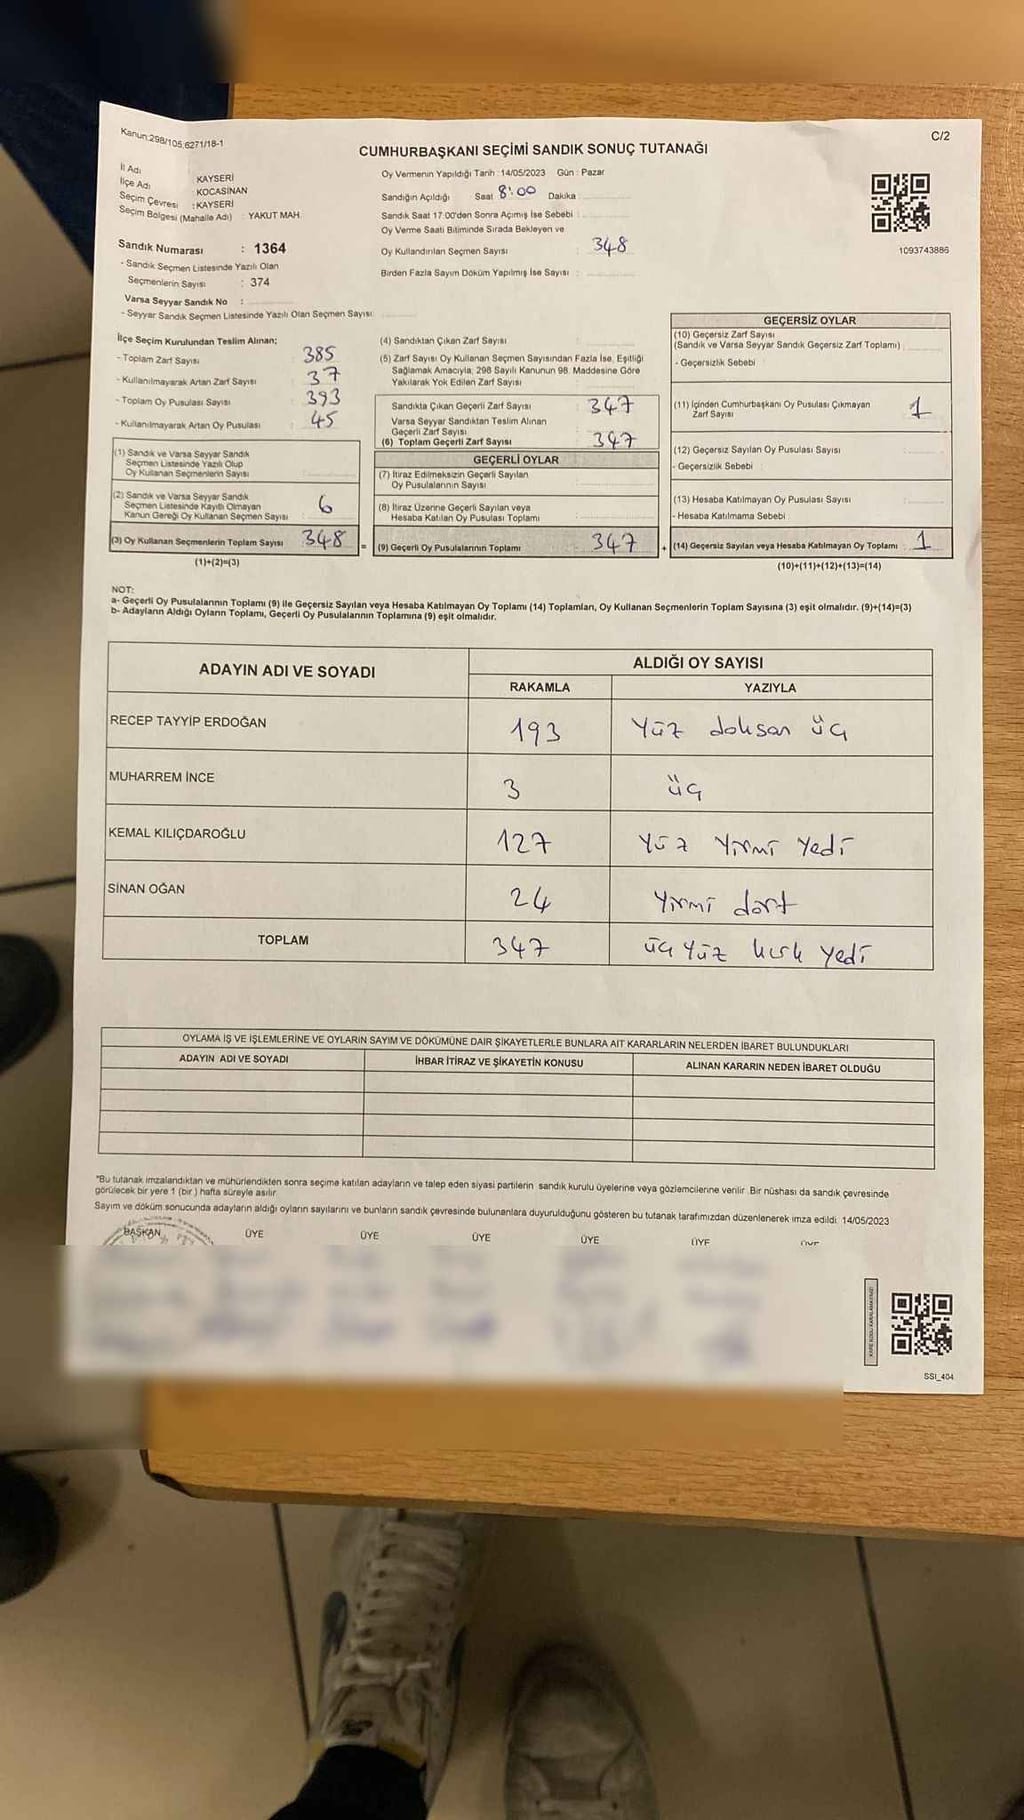 Kanun:298/105,6271/18-1
C/2
CUMHURBAŞKANI SEÇİMİ SANDIK SONUÇ TUTANAĞI
İl Adı : KAYSERİ
İlçe Adı : KOCASİNAN
Seçim Çevresi : KAYSERİ
Seçim Bölgesi (Mahalle Adı) : YAKUT MAH.
Sandık Numarası : 1364
- Sandık Seçmen Listesinde Yazılı Olan
Seçmenlerin Sayısı : 374
Varsa Seyyar Sandık No :
- Seyyar Sandık Seçmen Listesinde Yazılı Olan Seçmen Sayısı:
Oy Vermenin Yapıldığı Tarih : 14/05/2023 Gün : Pazar
Sandığın Açıldığı Saat 8:00 Dakika :
Sandık Saat 17:00'den Sonra Açımış İse Sebebi :
Oy Verme Saati Bitiminde Sırada Bekleyen ve
Oy Kullandırılan Seçmen Sayısı : 348
Birden Fazla Sayım Döküm Yapılmış İse Sayısı :
1093743886
İlçe Seçim Kurulundan Teslim Alınan;
- Toplam Zarf Sayısı : 385
- Kullanılmayarak Artan Zarf Sayısı : 37
- Toplam Oy Pusulası Sayısı : 393
- Kullanılmayarak Artan Oy Pusulası : 45
(1) Sandık ve Varsa Seyyar Sandık
Seçmen Listesinde Yazılı Olup
Oy Kullanan Seçmenlerin Sayısı :
(2) Sandık ve Varsa Seyyar Sandık
Seçmen Listesinde Kayıtlı Olmayan
Kanun Gereği Oy Kullanan Seçmen Sayısı : 6
(3) Oy Kullanan Seçmenlerin Toplam Sayısı : 348
(1)+(2)=(3)
(4) Sandıktan Çıkan Zarf Sayısı :
(5) Zarf Sayısı Oy Kullanan Seçmen Sayısından Fazla İse, Eşitliği
Sağlamak Amacıyla; 298 Sayılı Kanunun 98. Maddesine Göre
Yakılarak Yok Edilen Zarf Sayısı :
Sandıkta Çıkan Geçerli Zarf Sayısı : 347
Varsa Seyyar Sandıktan Teslim Alınan
Geçerli Zarf Sayısı :
(6) Toplam Geçerli Zarf Sayısı : 347
GEÇERLİ OYLAR
(7) İtiraz Edilmeksizin Geçerli Sayılan
Oy Pusulalarının Sayısı :
(8) İtiraz Üzerine Geçerli Sayılan veya
Hesaba Katılan Oy Pusulası Toplamı :
= (9) Geçerli Oy Pusulalarının Toplamı : 347
GEÇERSİZ OYLAR
(10) Geçersiz Zarf Sayısı
(Sandık ve Varsa Seyyar Sandık Geçersiz Zarf Toplamı) :
- Geçersizlik Sebebi :
(11) İçinden Cumhurbaşkanı Oy Pusulası Çıkmayan
Zarf Sayısı : 1
(12) Geçersiz Sayılan Oy Pusulası Sayısı :
- Geçersizlik Sebebi :
(13) Hesaba Katılmayan Oy Pusulası Sayısı :
- Hesaba Katılmama Sebebi :
+ (14) Geçersiz Sayılan veya Hesaba Katılmayan Oy Toplamı : 1
(10)+(11)+(12)+(13)=(14)
NOT:
a- Geçerli Oy Pusulalarının Toplamı (9) ile Geçersiz Sayılan veya Hesaba Katılmayan Oy Toplamı (14) Toplamları, Oy Kullanan Seçmenlerin Toplam Sayısına (3) eşit olmalıdır. (9)+(14)=(3)
b- Adayların Aldığı Oyların Toplamı, Geçerli Oy Pusulalarının Toplamına (9) eşit olmalıdır.
ADAYIN ADI VE SOYADI
ALDIĞI OY SAYISI
RAKAMLA YAZIYLA
RECEP TAYYİP ERDOĞAN 193 Yüz doksan üç
MUHARREM İNCE 3 üç
KEMAL KILIÇDAROĞLU 127 Yüz Yirmi Yedi
SİNAN OĞAN 24 Yirmi dört
TOPLAM 347 üç Yüz kırk Yedi
OYLAMA İŞ VE İŞLEMLERİNE VE OYLARIN SAYIM VE DÖKÜMÜNE DAİR ŞİKAYETLERLE BUNLARA AİT KARARLARIN NELERDEN İBARET BULUNDUKLARI
ADAYIN ADI VE SOYADI İHBAR İTİRAZ VE ŞİKAYETİN KONUSU ALINAN KARARIN NEDEN İBARET OLDUĞU
"Bu tutanak imzalandıktan ve mühürlendikten sonra seçime katılan adayların ve talep eden siyasi partilerin sandık kurulu üyelerine veya gözlemcilerine verilir .Bir nüshası da sandık çevresinde
görülecek bir yere 1 (bir ) hafta süreyle asılır.
Sayım ve döküm sonucunda adayların aldığı oyların sayılarını ve bunların sandık çevresinde bulunanlara duyurulduğunu gösteren bu tutanak tarafımızdan düzenlenerek imza edildi. 14/05/2023
BAŞKAN ÜYE ÜYE ÜYE ÜYE ÜYE ÜYE
SSI_404